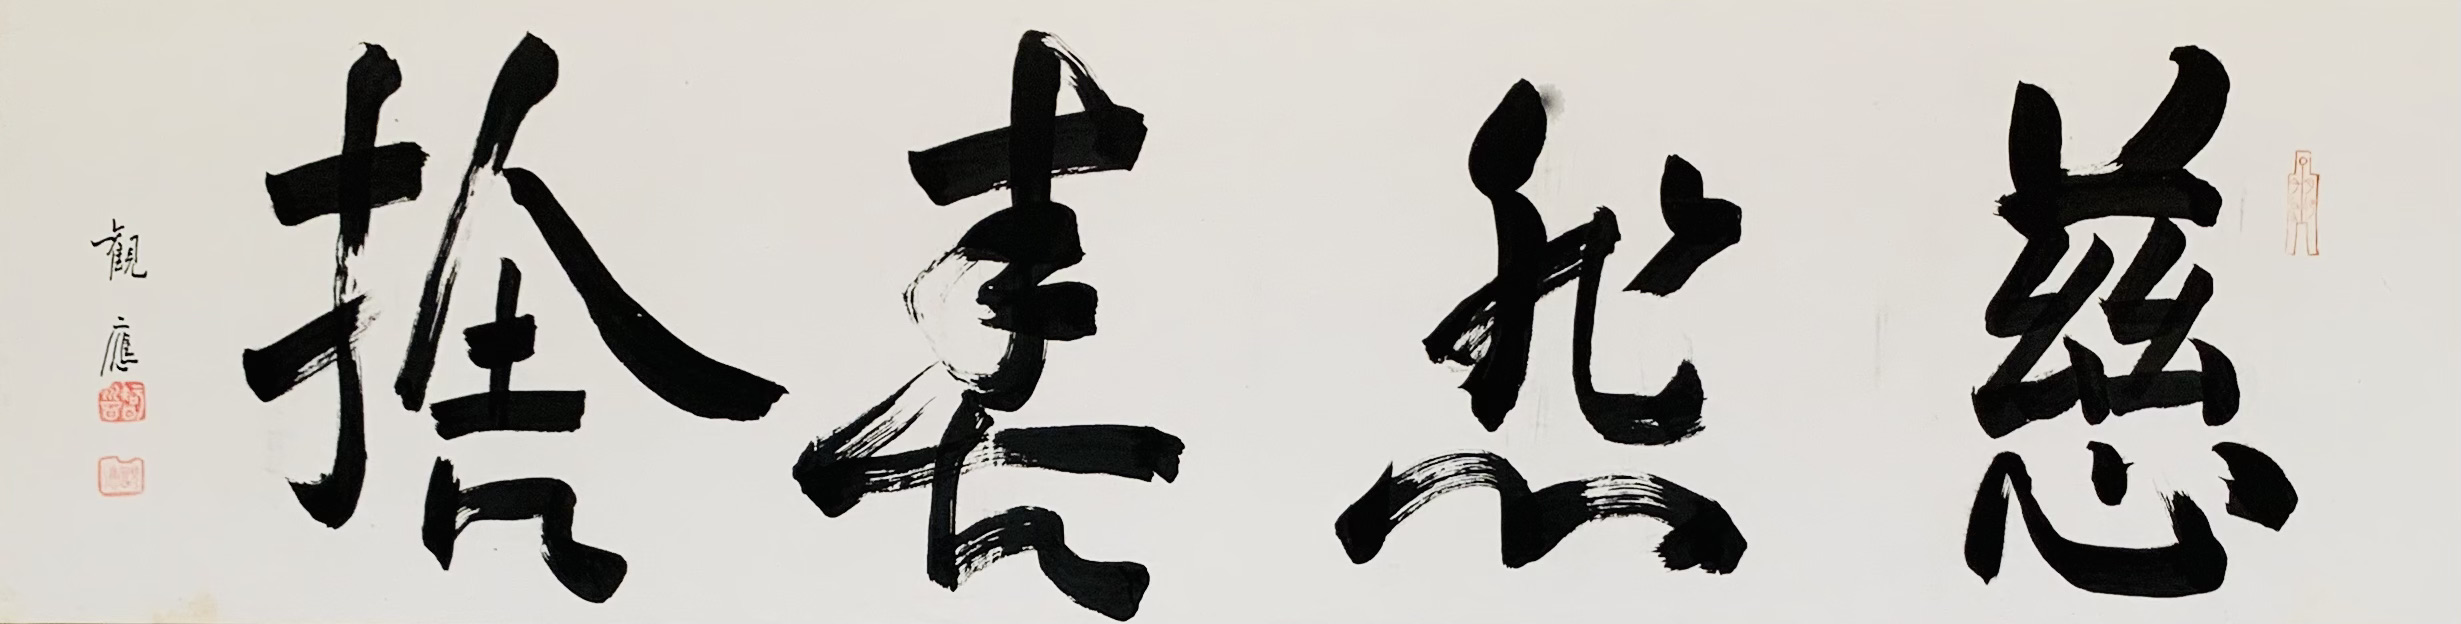 慈悲喜捨
觀應